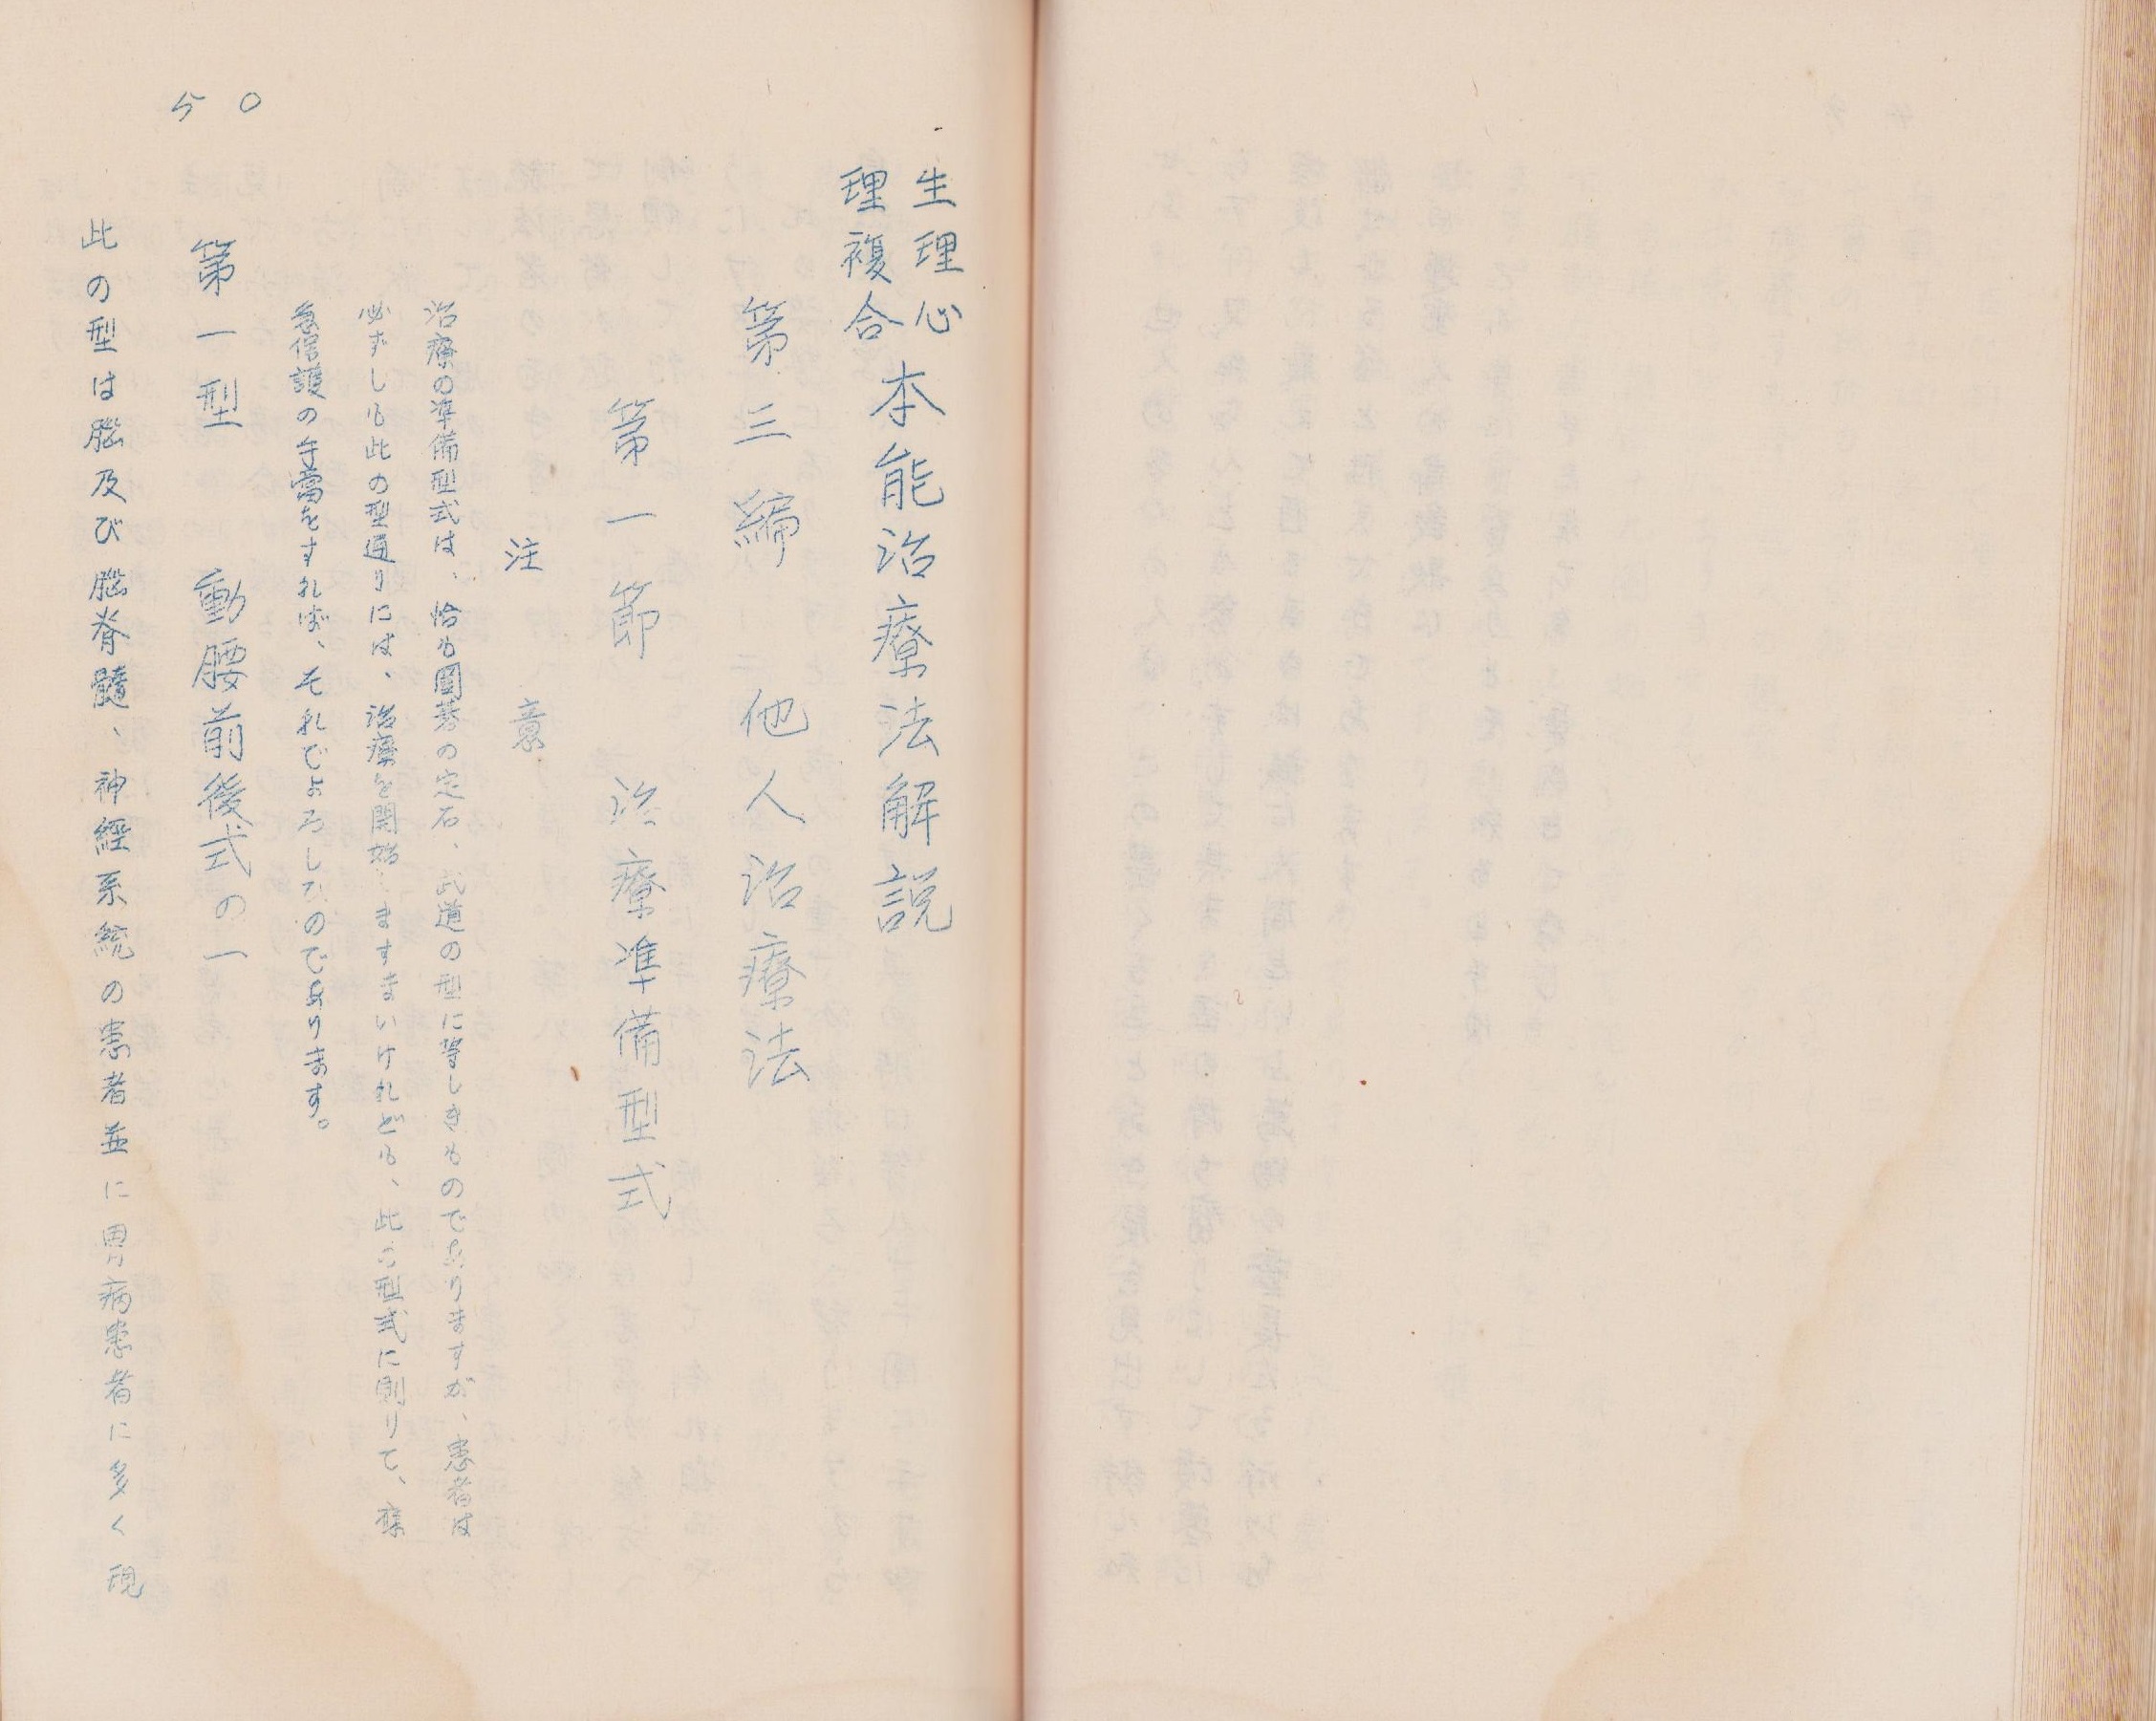 五〇
生理心
理複合
本能治療法解説
第三締 他人治療法
第一節 治療準備型式
注意
治療の準備型式は、恰も圍碁の定石、武道の型に等しきものでありますが、患者は
必ずしも此の型通りには、治療を開始しますまいけれども、此の型式に則りて、
急信護の手當をすれば、それでよろしひのであります。
第一型 動腰前後式の一
此の型は脳及び脳脊髓、神經系統の患者並に胃病患者に多く現